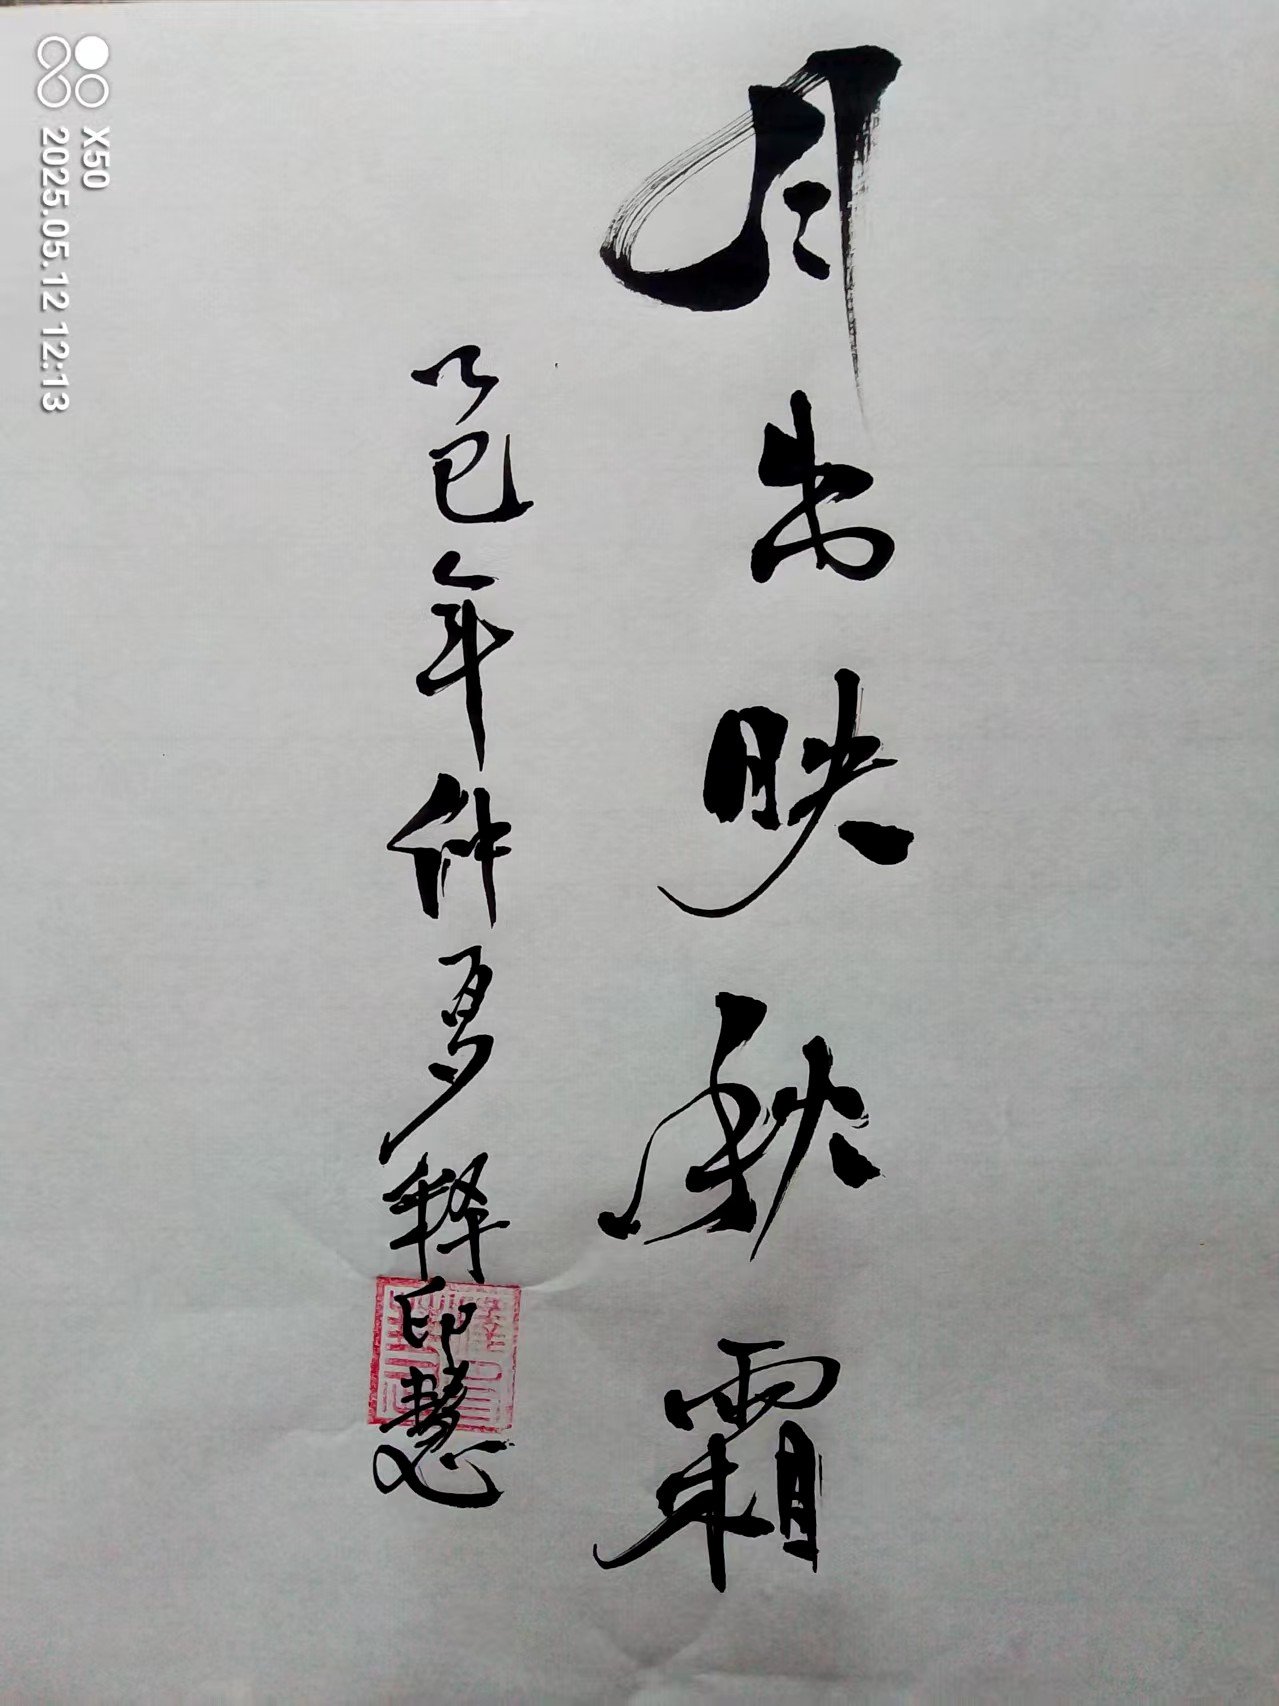 月出映秋霜
乙巳年仲夏释印慧
X50
2025.05.12 12:13